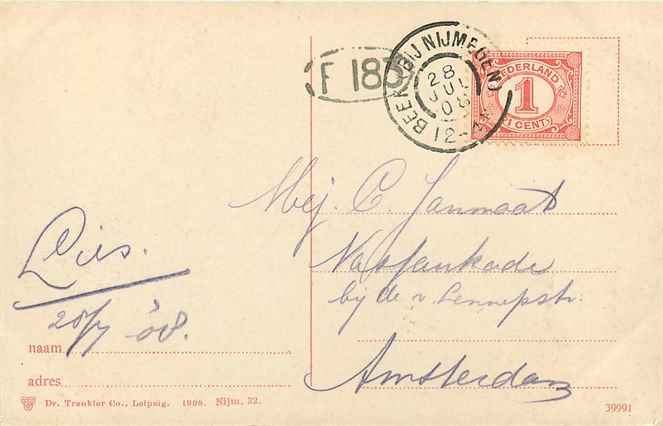 F 183
BEEK (BIJ NIJMEGEN)
28
JUL
08
12-4
NEDERLAND
1
CENT
Mej. C. Janmaat
Nassaukade
bij de v. Lennepstr.
Amsterdam
Lies.
28/7 '08.
naam
adres
Dr. Trenkler Co., Leipzig. 1906. Nijm. 22.
39991